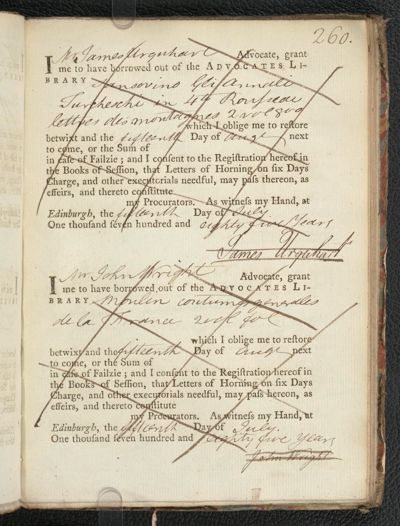 260.
I Mr James Urquhart Advocate, grant
me to have borrowed out of the ADVOCATES LI-
BRARY Sansovino Gli Annali
Turcheschi in 4to Rousseau
lettres des montagnes 2 vol 8vo
which I oblige me to restore
betwixt and the fifteenth Day of augt next
to come, or the Sum of
in case of Failzie; and I consent to the Registration hereof in
the Books of Session, that Letters of Horning on six Days
Charge, and other executorials needful, may pass thereon, as
effeirs, and thereto constitute
my Procurators. As witness my Hand, at
Edinburgh, the fifteenth Day of July
One thousand seven hundred and eighty five Years
James Urquhart
I Mr John Wright Advocate, grant
me to have borrowed out of the ADVOCATES LI-
BRARY Moulin coutumes generales
de la France 2 vol fol
which I oblige me to restore
betwixt and the fifteenth Day of augt next
to come, or the Sum of
in case of Failzie; and I consent to the Registration hereof in
the Books of Session, that Letters of Horning on six Days
Charge, and other executorials needful, may pass hereon, as
effeirs, and thereto constitute
my Procurators. As witness my Hand, at
Edinburgh, the fifteenth Day of July.
One thousand seven hundred and eighty five Years
John Wright